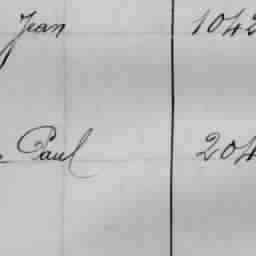 Jean 1042
Paul 204